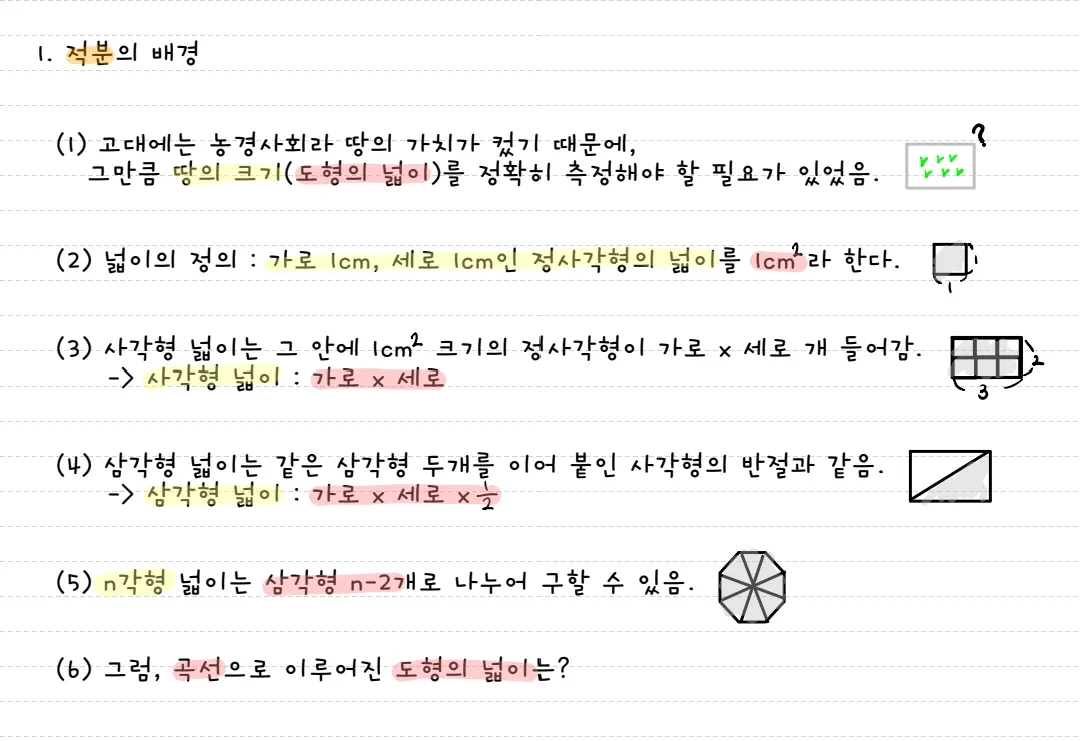 1. 적분의 배경
(1) 고대에는 농경사회라 땅의 가치가 컸기 때문에,
그만큼 땅의 크기(도형의 넓이)를 정확히 측정해야 할 필요가 있었음.
?
(2) 넓이의 정의 : 가로 1cm, 세로 1cm인 정사각형의 넓이를 1cm²라 한다.
1
1
(3) 사각형 넓이는 그 안에 1cm² 크기의 정사각형이 가로 x 세로 개 들어감.
-> 사각형 넓이 : 가로 x 세로
2
3
(4) 삼각형 넓이는 같은 삼각형 두개를 이어 붙인 사각형의 반절과 같음.
-> 삼각형 넓이 : 가로 x 세로 x 1/2
(5) n각형 넓이는 삼각형 n-2개로 나누어 구할 수 있음.
(6) 그럼, 곡선으로 이루어진 도형의 넓이는?